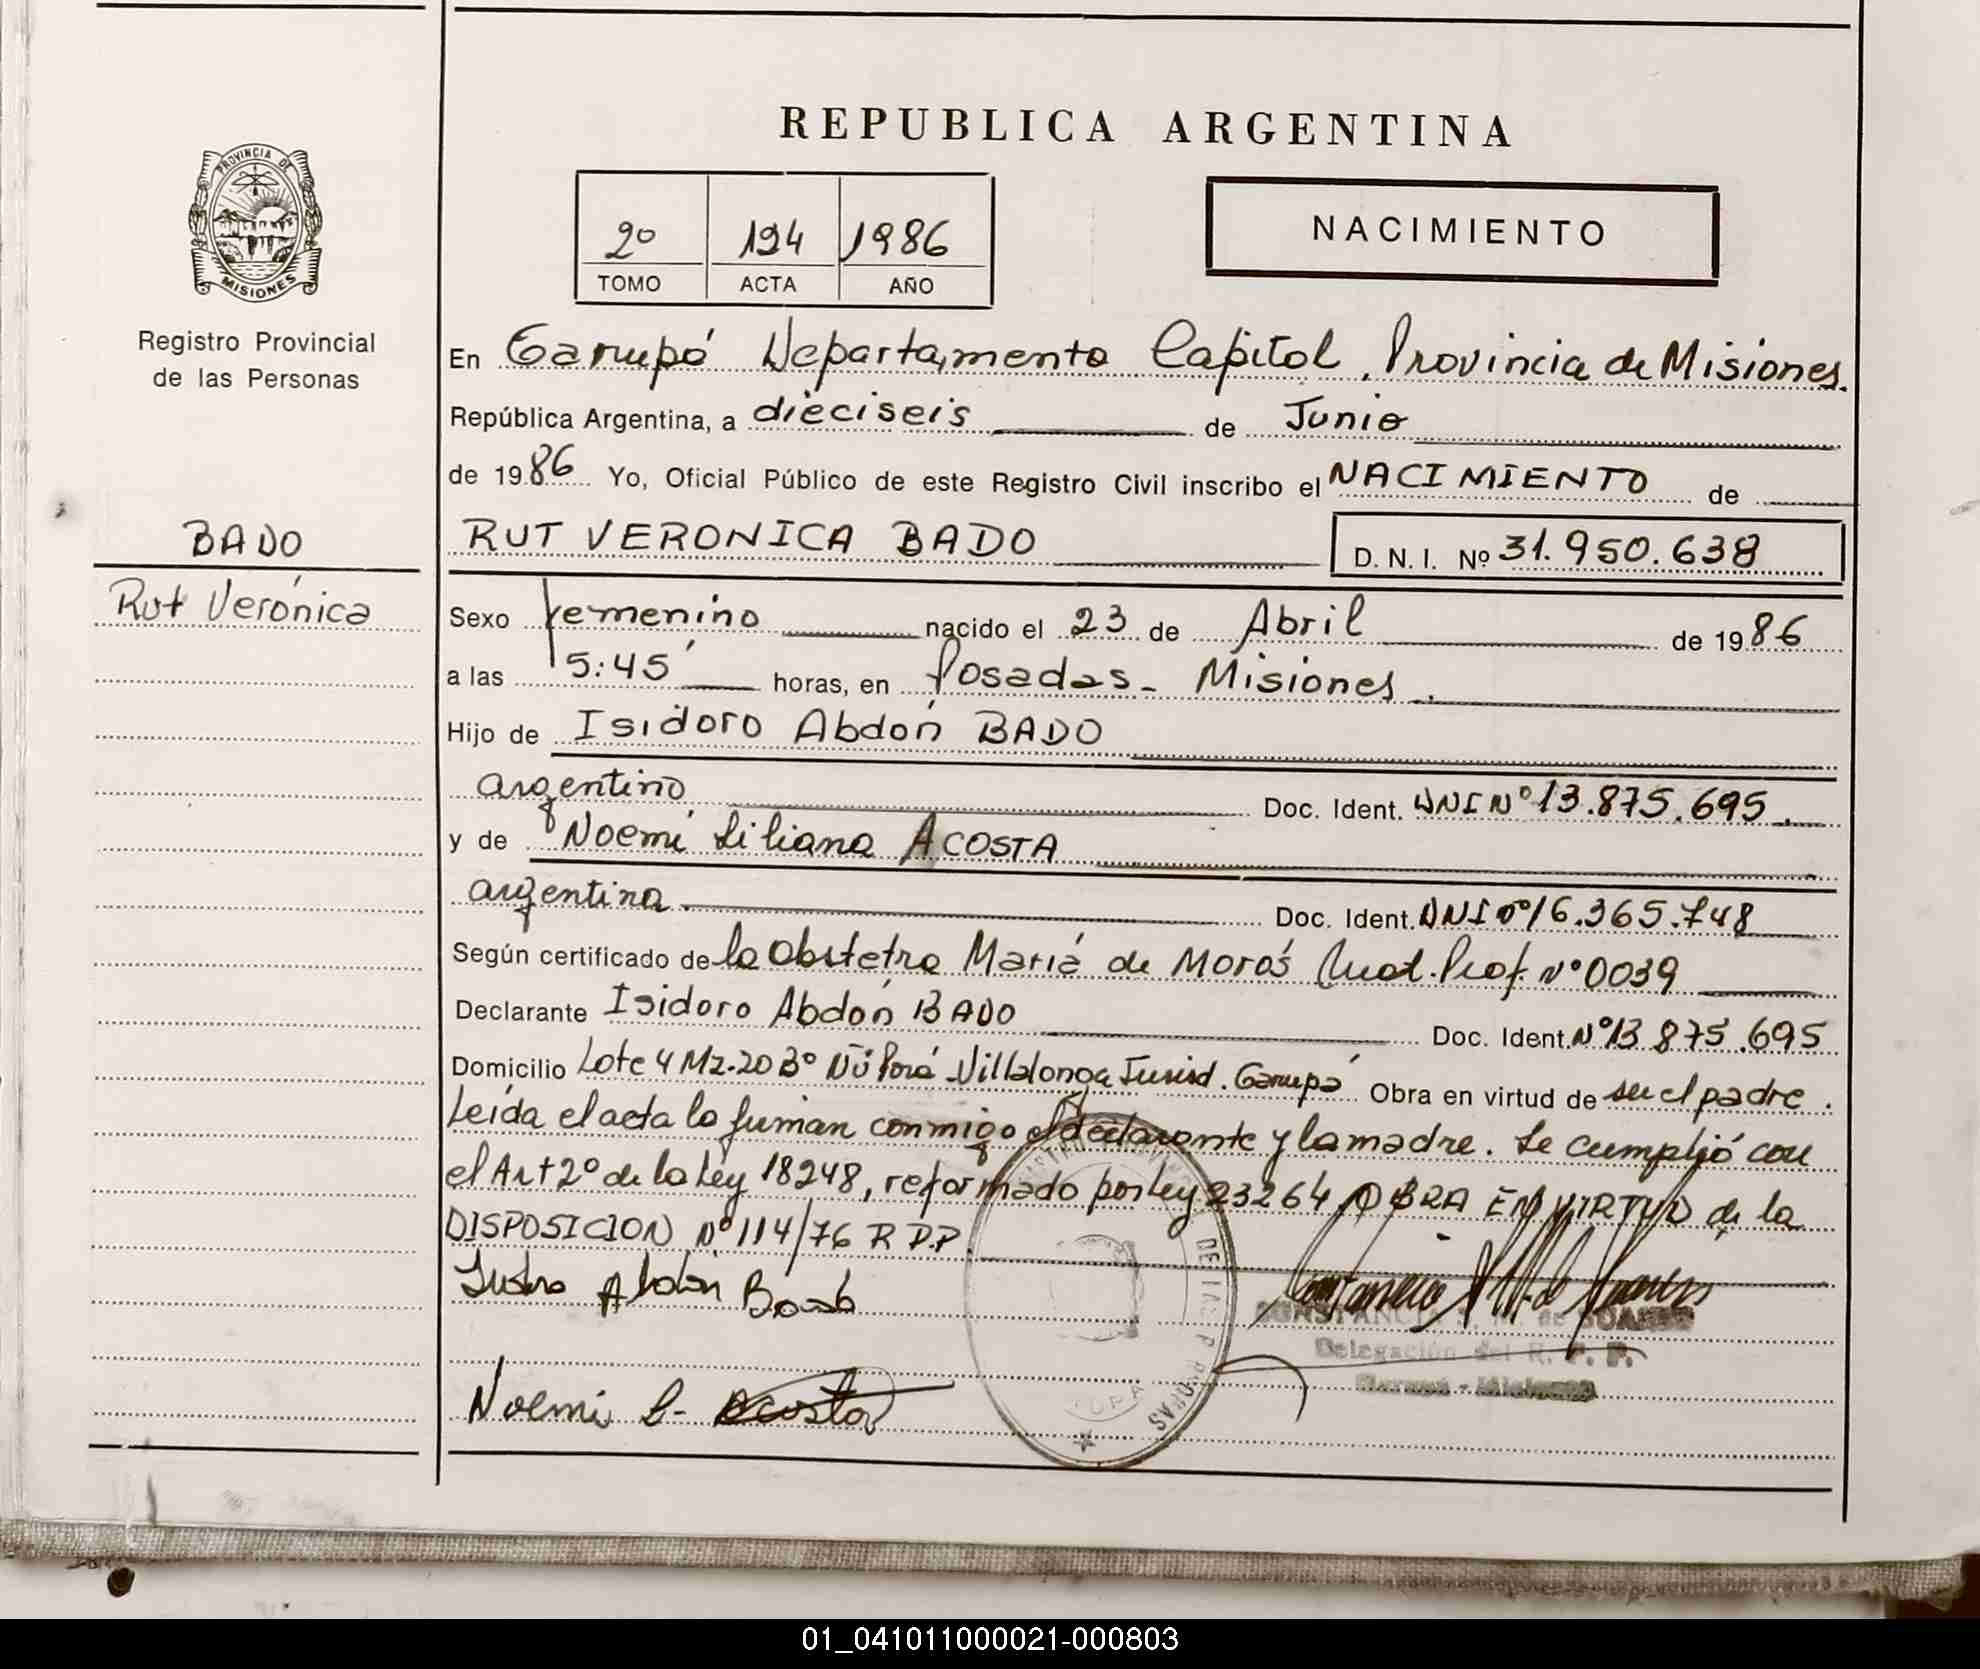 REPUBLICA ARGENTINA
PROVINCIA DE
MISIONES
Registro Provincial
de las Personas
2º 194 1986
TOMO ACTA AÑO
NACIMIENTO
En Garupá Departamento Capital, Provincia de Misiones.
República Argentina, a dieciseis de Junio
de 1986 Yo, Oficial Público de este Registro Civil inscribo el NACIMIENTO de
BADO
Rut Verónica
RUT VERONICA BADO D. N. I. Nº 31.950.638
Sexo femenino nacido el 23 de Abril de 1986
a las 5:45' horas, en Posadas - Misiones.
Hijo de Isidoro Abdón BADO
argentino Doc. Ident. DNI Nº 13.875.695.
y de Noemí Liliana ACOSTA
argentina. Doc. Ident. DNI Nº 16.365.748
Según certificado de la Obstetra María de Morás Mat. Prof. Nº 0039
Declarante Isidoro Abdón BADO Doc. Ident. Nº 13 875.695
Domicilio Lote 4 Mz. 20 Bº Ñú Porá - Villalonga Jurisd. Garupá Obra en virtud de ser el padre.
Leída el acta la firman conmigo el declarante y la madre. Se cumplió con
el Art 2º de la Ley 18248, reformado por Ley 23264 OBRA EN VIRTUD de la
DISPOSICION Nº 114/76 R P.P.
Abdón Bado
CONSTANCIA de SUAREZ
Delegación del R. P. P.
Garupá - Misiones
Noemi L. Acosta
DE LAS PERSONAS
01_041011000021-000803